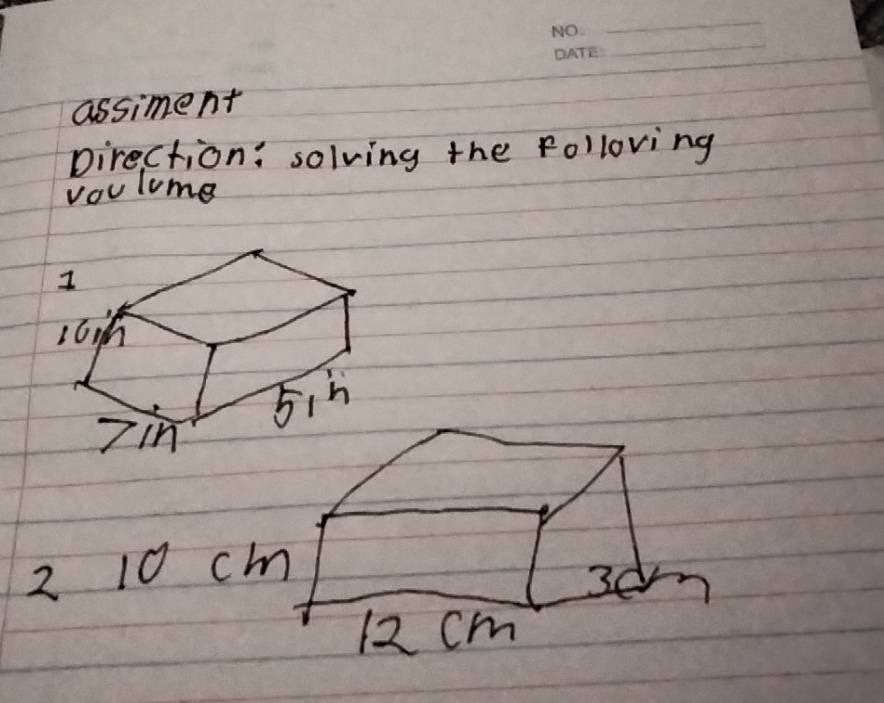 NO.
DATE:
assiment
Direction: solving the Folloving
voulume
1
10in
7in
5in
2 10 cm
3cm
12 cm